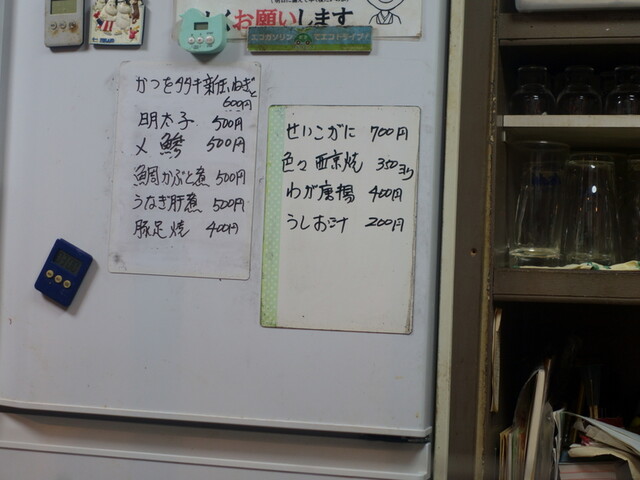 お願いします
エコガソリン でエコドライブ!
かつをタタキ新玉ねぎと
600円
明太子 500円
〆鯵 500円
鯛かぶと煮 500円
うなぎ肝煮 500円
豚足焼 400円
せいこがに 700円
色々西京焼 350ヨリ
わが唐揚 400円
うしお汁 200円